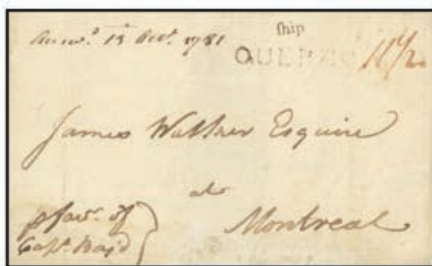 13 Octr. 1781
ship
QUEBEC 11½
James Walker Esquire
at
Montreal
pfavr. of
Capt. Boyd